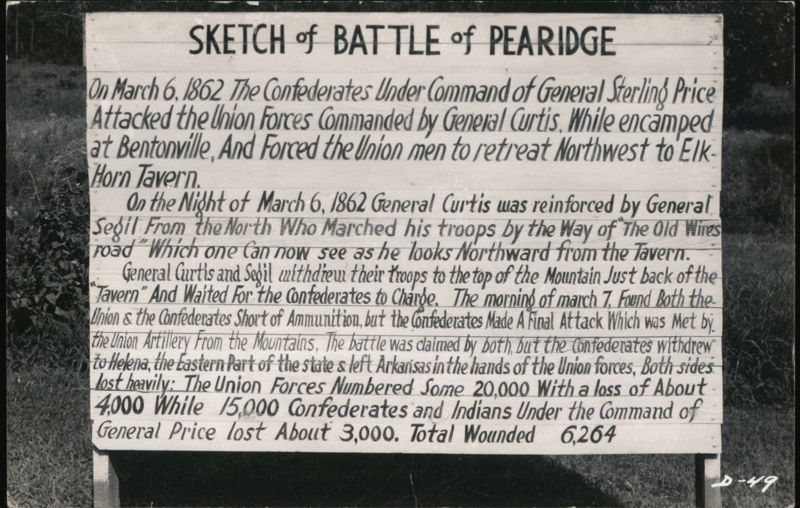 SKETCH of BATTLE of PEARIDGE
On March 6, 1862 The Confederates Under Command of General Sterling Price
Attacked the Union Forces Commanded by General Curtis, While encamped
at Bentonville, And Forced the Union men to retreat Northwest to Elk-
Horn Tavern.
On the Night of March 6, 1862 General Curtis was reinforced by General
Segil From the North Who Marched his troops by the Way of "The Old Wires
road" Which one Can now see as he looks Northward from the Tavern.
General Curtis and Segil withdrew their troops to the top of the Mountain Just back of the
"Tavern" And Waited For the Confederates to Charge. The morning of march 7, Found Both the
Union & the Confederates Short of Ammunition, but the Confederates Made A Final Attack Which was Met by
the Union Artillery From the Mountains. The battle was claimed by both, but the Confederates withdrew
to Helena, the Eastern Part of the state & left Arkansas in the hands of the Union forces, Both sides
lost heavily: The Union Forces Numbered Some 20,000 With a loss of About
4,000 While 15,000 Confederates and Indians Under the Command of
General Price lost About 3,000. Total Wounded 6,264
D-49